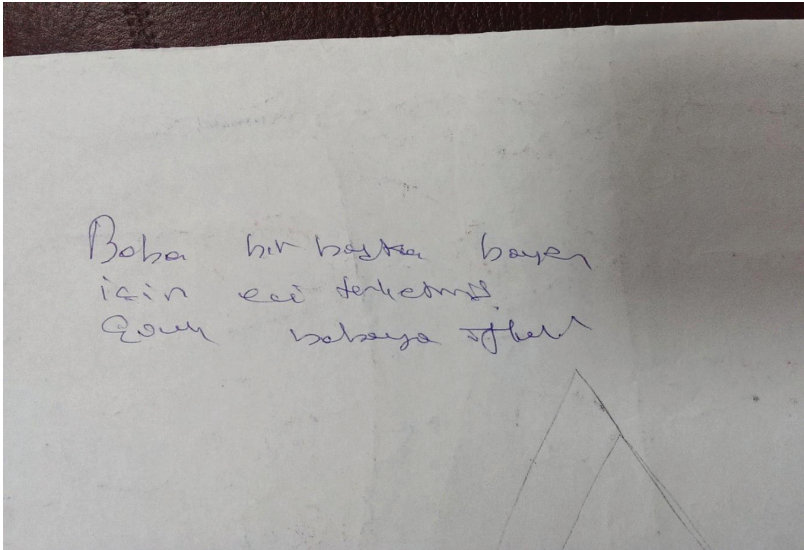 Baba bir başka bayan
için evi terketmiş.
Çocuk babaya öfkeli